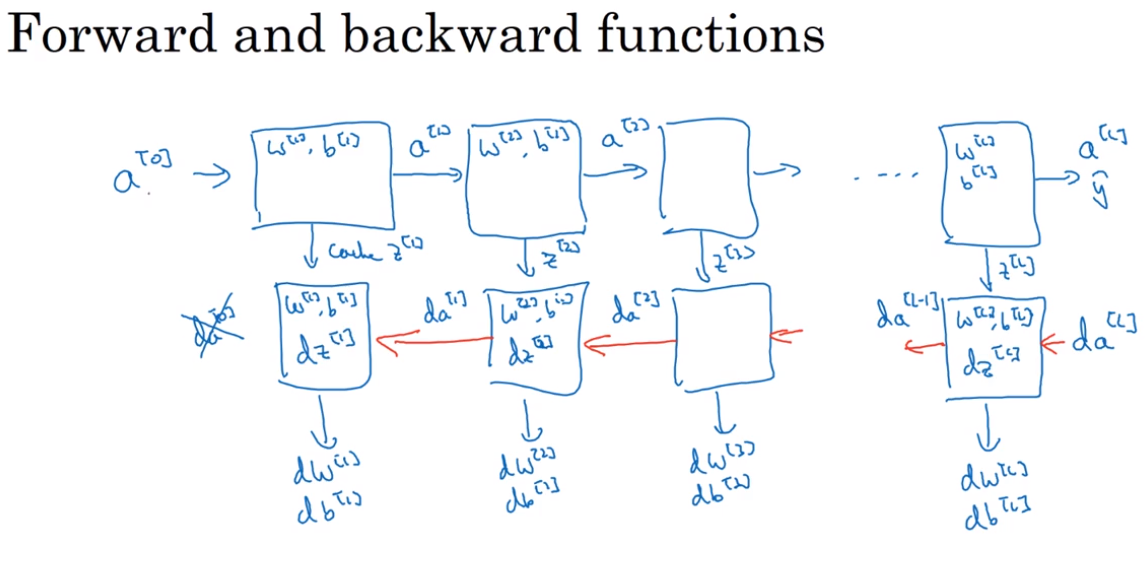 Forward and backward functions
a^[0] → w^[1], b^[1] a^[1] → w^[2], b^[2] a^[2] → → ···· w^[L] b^[L] → a^[L] ŷ
cache z^[1] z^[2] z^[3] z^[L]
da^[0] w^[1], b^[1] dz^[1] ← da^[1] w^[2], b^[2] dz^[2] ← da^[2] ← da^[L-1] ← w^[L], b^[L] dz^[L] ← da^[L]
dw^[1] dw^[2] dw^[3] dw^[L]
db^[1] db^[2] db^[3] db^[L]